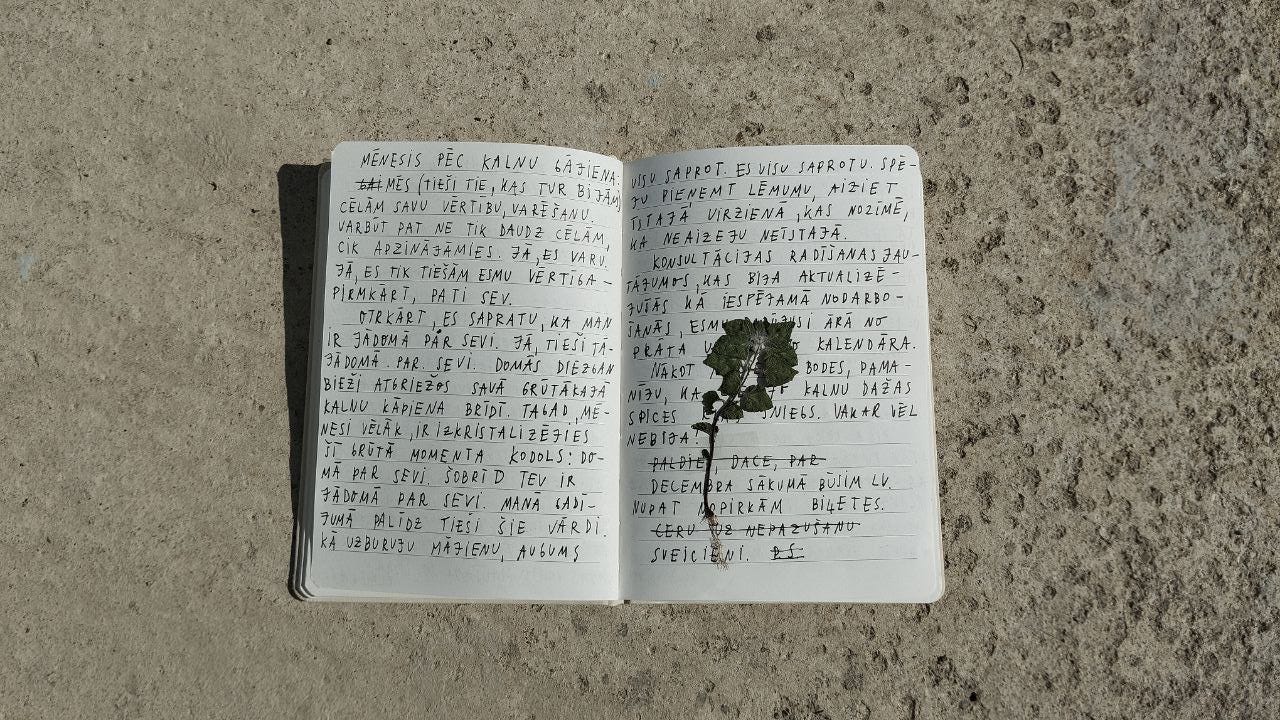 MĒNESIS PĒC KALNU GĀJIENA.
GAI MĒS (TIEŠI TIE, KAS TUR BIJĀM)
CĒLĀM SAVU VĒRTĪBU, VARĒŠANU.
VARBŪT PAT NE TIK DAUDZ CĒLĀM,
CIK APZINĀJĀMIES. JĀ, ES VARU.
JĀ, ES TIK TIEŠĀM ESMU VĒRTĪGA –
PIRMKĀRT, PATI SEV.
OTRKĀRT, ES SAPRATU, KA MAN
IR JĀDOMĀ PAR SEVI. JĀ, TIEŠI TĀ-
JĀDOMĀ PAR SEVI. DOMĀS DIEZGAN
BIEŽI ATGRIEŽOS SAVĀ GRŪTĀKAJĀ
KALNU KĀPIENA BRĪDĪ. TAGAD, MĒ-
NESI VĒLĀK, IR IZKRISTALIZĒJIES
ŠĪ GRŪTĀ MOMENTA KODOLS: DO-
MĀ PAR SEVI. ŠOBRĪD TEV IR
JĀDOMĀ PAR SEVI. MANĀ GADĪ-
JUMĀ PALĪDZ TIEŠI ŠIE VĀRDI.
KĀ UZBURUJU MĀJIENU, AUGUMS
VISU SAPROT. ES VISU SAPROTU. SPĒ-
JU PIEŅEMT LĒMUMU, AIZIET
ĪSTAJĀ VIRZIENĀ, KAS NOZĪMĒ,
KA NEAIZEJU NEĪSTAJĀ.
KONSULTĀCIJAS RADĪŠANAS JAU-
TĀJUMOS, KAS BIJA AKTUALIZĒ-
JUŠĀS KĀ IESPĒJAMĀ NODARBO-
ŠANĀS, ESMU ĀRĀ NO
PRĀTA KALENDĀRA.
NĀKOT BODES, PAMA-
NĪJU, KA KALNU DAŽAS
SPICES SNIEGS. VAKAR VĒL
NEBIJA!
PALDIES, DACE, PAR
DECEMBRA SĀKUMĀ BŪSIM LV.
NUPAT NOPIRKĀM BIĻETES.
CERU UZ NEPAZUŠANU
SVEICIENI. DS.